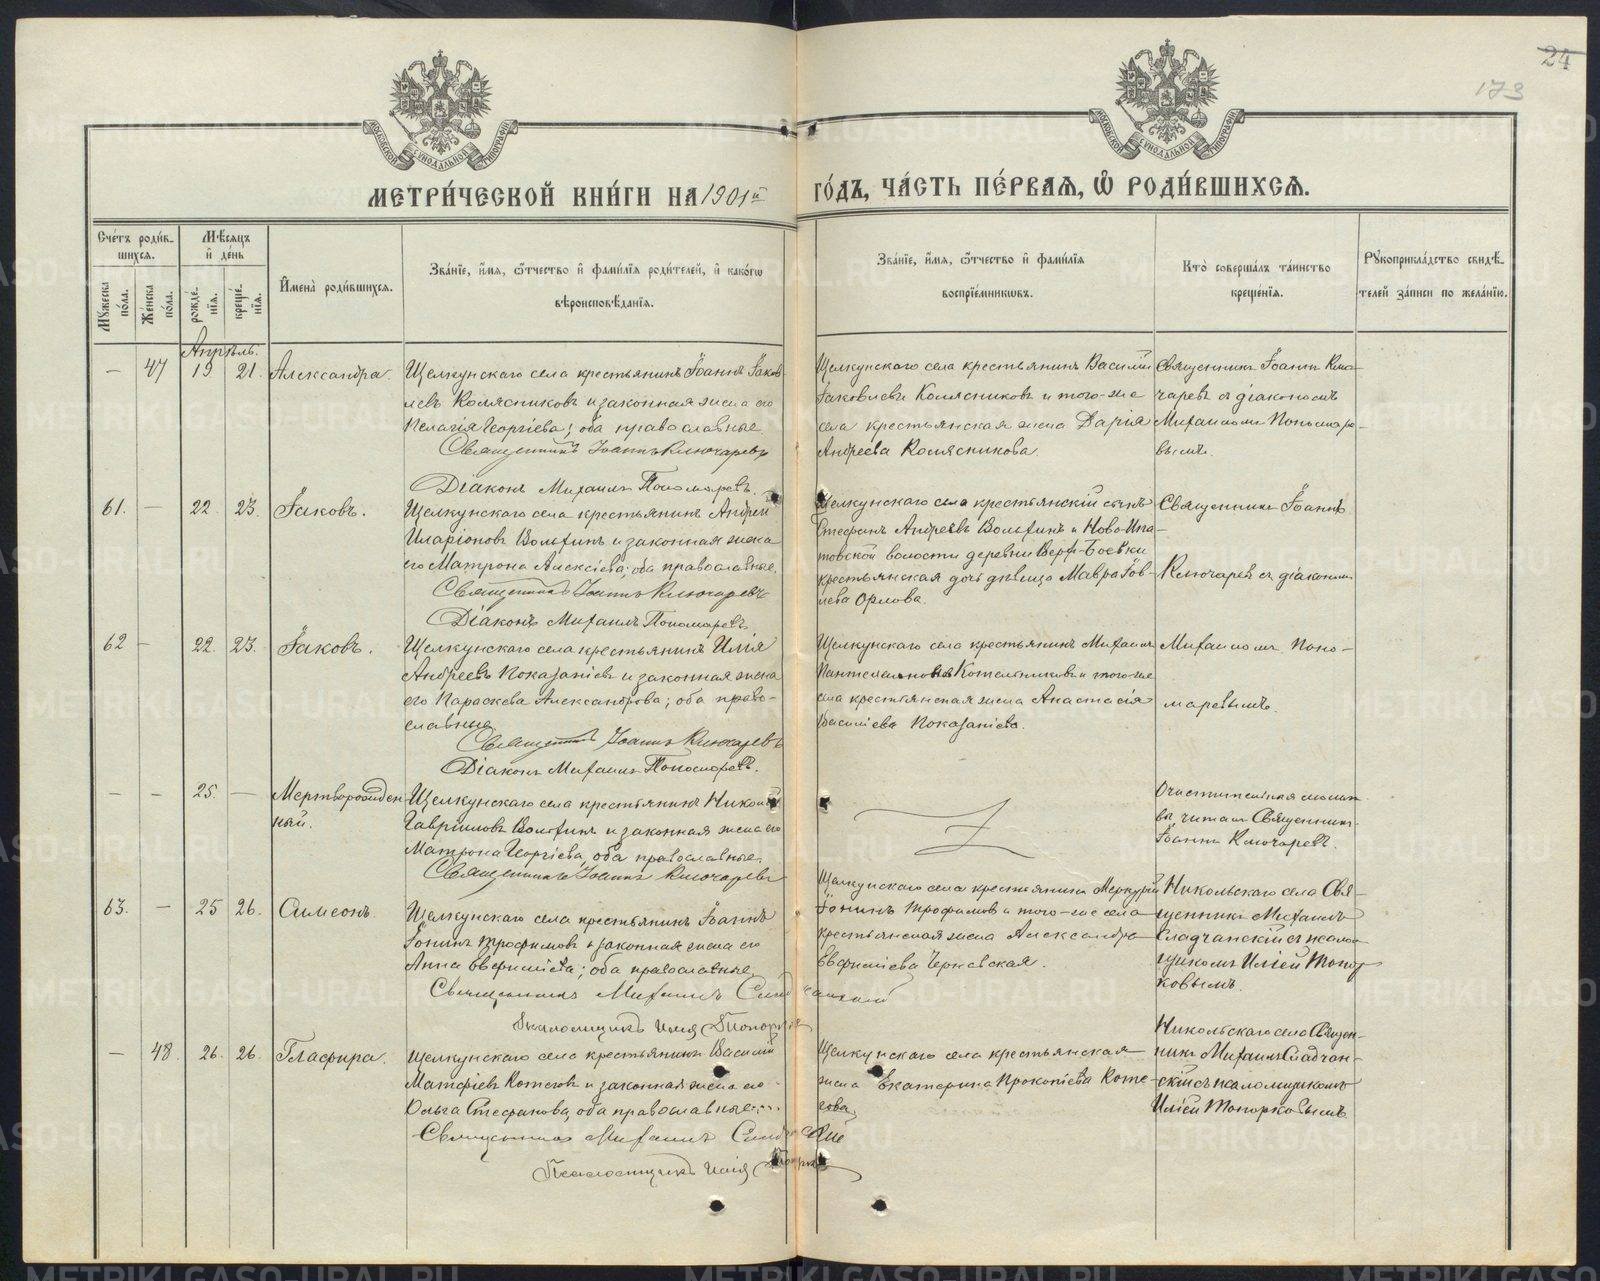 24
173
МОСКОВСКОЙ СѴНОДАЛЬНОЙ ТИПОГРАФІИ
МОСКОВСКОЙ СѴНОДАЛЬНОЙ ТИПОГРАФІИ
МЕТРИ́ЧЕСКОЙ КНИ́ГИ НА 1901й ГО́ДЪ, ЧА́СТЬ ПЕ́РВАЯ, Ѡ҆ РОДИ́ВШИХСЯ.
Сче́тъ роди́в-
шихся.
Мѹ́жеска по́ла.
Же́нска по́ла.
Мѣ́сяцъ
и҆ де́нь
рожде́нїя.
креще́нїя.
И҆мена̀ роди́вшихся.
Зва́нїе, и҆́мя, ѻ҆́тчество и҆ фами́лїя роди́телей, и҆ како́гѡ
вѣроисповѣ́данїя.
Зва́нїе, и҆́мя, ѻ҆́тчество и҆ фами́лїя
воспрїе́мникѡвъ.
Кто̀ соверша́лъ та́инство
креще́нїя.
Рѹкоприкла́дство свидѣ́-
телей за́писи по жела́нїю.
Апрѣль.
— 47 19 21. Александра.
Щелкунскаго села крестьянинъ Іоаннъ Іаков-
левъ Колясниковъ и законная жена его
Пелагія Георгіева; оба православные
Священникъ Іоаннъ Ключаревъ
Діаконъ Михаилъ Пономаревъ.
Щелкунскаго села крестьянинъ Василій
Іаковлевъ Колясниковъ и того-же
села крестьянская жена Дарія
Андреева Колясникова.
Священникъ Іоаннъ Клю-
чаревъ съ діакономъ
Михаиломъ Пономаре-
вымъ.
61. — 22 23. Іаковъ.
Щелкунскаго села крестьянинъ Андрей
Иларіоновъ Волынъ и законная жена
его Матрона Алексіева; оба православные.
Священникъ Іоаннъ Ключаревъ
Діаконъ Михаилъ Пономаревъ
Щелкунскаго села крестьянскій сынъ
Стефанъ Андреевъ Волынъ и Ново-Ипа-
товской волости деревни Верх-Боевки
крестьянская дочь дѣвица Мавра Іов-
лева Орлова.
Священникъ Іоаннъ
Ключаревъ съ діакономъ
62 — 22. 23. Іаковъ.
Щелкунскаго села крестьянинъ Илія
Андреевъ Показаніевъ и законная жена
его Параскева Александрова; оба право-
славные
Священникъ Іоаннъ Ключаревъ
Діаконъ Михаилъ Пономаревъ.
Щелкунскаго села крестьянинъ Михаилъ
Пантелеимоновъ Котельниковъ и того-же
села крестьянская жена Анастасія
Василіева Показаніева.
Михаиломъ Поно-
маревымъ.
— — 25. — Мертворожден-
ный.
Щелкунскаго села крестьянинъ Никонъ
Гавріиловъ Волынъ и законная жена его
Матрона Георгіева, оба православные.
Священникъ Іоаннъ Ключаревъ
Очистительныя молит-
вы читалъ Священникъ
Іоаннъ Ключаревъ.
63. — 25 26. Симеонъ.
Щелкунскаго села крестьянинъ Іоаннъ
Іонинъ Трофимовъ и законная жена его
Анна Евфиміева; оба православные.
Священникъ Михаилъ Сладчанскій
Псаломщикъ Илія Топорковъ
Щелкунскаго села крестьянинъ Меркурій
Іонинъ Трофимовъ и того-же села
крестьянская жена Александра
Евфиміева Чернавская.
Никольскаго села Свя-
щенникъ Михаилъ
Сладчанскій съ псалом-
щикомъ Иліей Топор-
ковымъ.
— 48. 26. 26. Глафира.
Щелкунскаго села крестьянинъ Василій
Матфіевъ Котеговъ и законная жена его
Ольга Стефанова, оба православные.
Священникъ Михаилъ Сладчанскій
Псаломщикъ Илія Топорковъ
Щелкунскаго села крестьянская
жена Екатерина Прокопіева Коте-
гова.
Никольскаго села Священ-
никъ Михаилъ Сладчан-
скій съ псаломщикомъ
Иліей Топорковымъ
METRIKI.GASO-URAL.RU